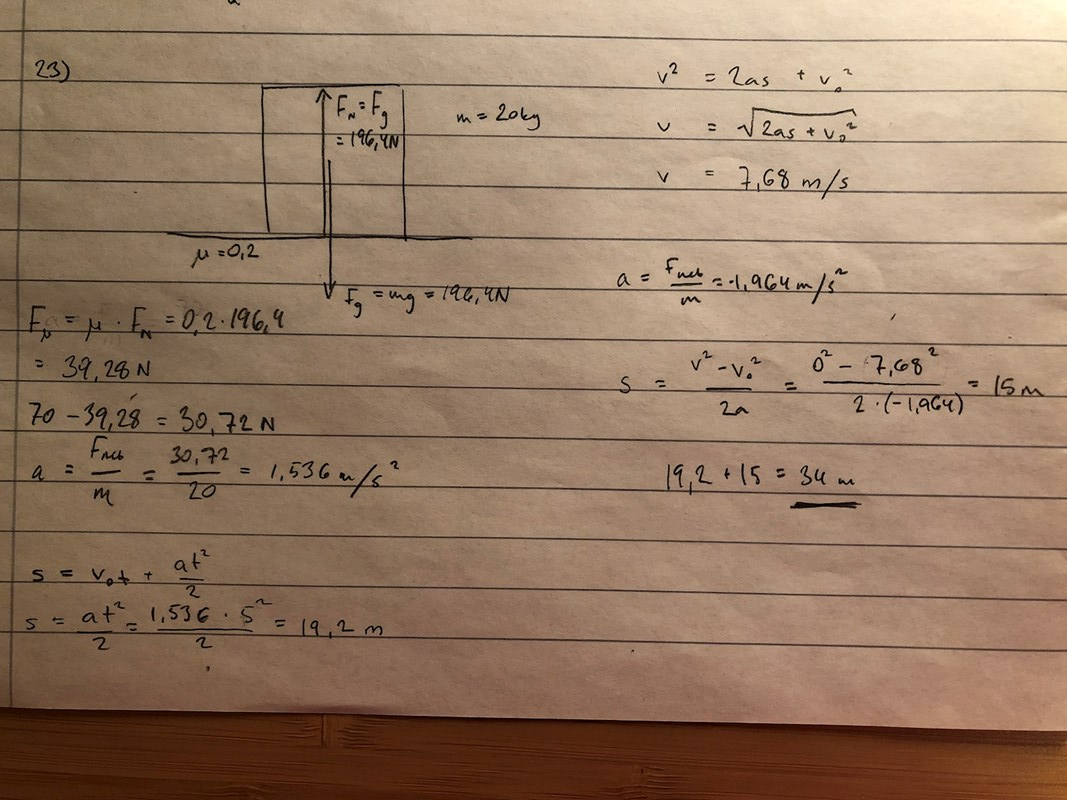 23)
F_N = F_g
= 196,4N
m = 20kg
μ = 0,2
F_g = mg = 196,4N
F_μ = μ · F_N = 0,2 · 196,4
= 39,28 N
70 - 39,28 = 30,72 N
a = F_net / m = 30,72 / 20 = 1,536 m/s²
s = v₀t + at² / 2
s = at² / 2 = 1,536 · 5² / 2 = 19,2 m
v² = 2as + v₀²
v = √(2as + v₀²)
v = 7,68 m/s
a = F_net / m = -1,964 m/s²
s = v² - v₀² / 2a = 0² - 7,68² / 2 · (-1,964) = 15 m
19,2 + 15 = 34 m